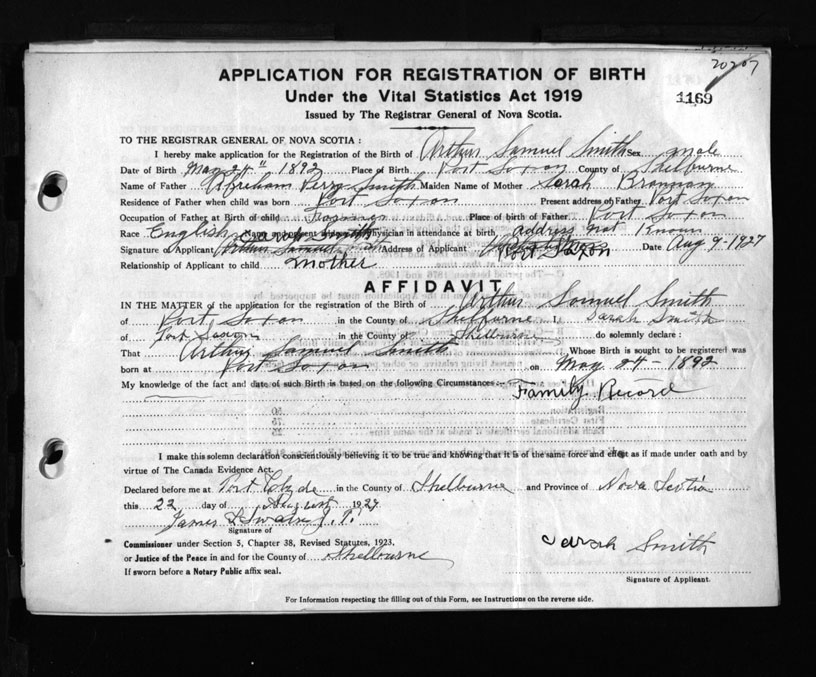 20207
APPLICATION FOR REGISTRATION OF BIRTH
1169
Under the Vital Statistics Act 1919
Issued by The Registrar General of Nova Scotia.
TO THE REGISTRAR GENERAL OF NOVA SCOTIA :
I hereby make application for the Registration of the Birth of Arthur Samuel Smith Sex male
Date of Birth May 24" 1892 Place of Birth Port Saxon County of Shelburne
Name of Father Abraham Perry Smith Maiden Name of Mother Sarah
Residence of Father when child was born Port Saxon Present address of Father Port Saxon
Occupation of Father at Birth of child Place of birth of Father Port Saxon
Race English Physician in attendance at birth address not Known
Signature of Applicant Sarah Smith Address of Applicant Port Saxon Date Aug 9-1927
Relationship of Applicant to child mother
AFFIDAVIT
IN THE MATTER of the application for the registration of the Birth of Arthur Samuel Smith
of Port Saxon in the County of Shelburne I, Sarah Smith
of Port Saxon in the County of Shelburne do solemnly declare :
That Arthur Samuel Smith Whose Birth is sought to be registered was
born at Port Saxon on May 24-1892
My knowledge of the fact and date of such Birth is based on the following Circumstances :- Family Record
I make this solemn declaration conscientiously believing it to be true and knowing that it is of the same force and effect as if made under oath and by
virtue of The Canada Evidence Act.
Declared before me at Port Clyde in the County of Shelburne and Province of Nova Scotia
this 22 day of August 1927
James Swain J.P.
Signature of
Commissioner under Section 5, Chapter 38, Revised Statutes, 1923,
or Justice of the Peace in and for the County of Shelbourne
Sarah Smith
If sworn before a Notary Public affix seal.
Signature of Applicant.
For Information respecting the filling out of this Form, see Instructions on the reverse side.